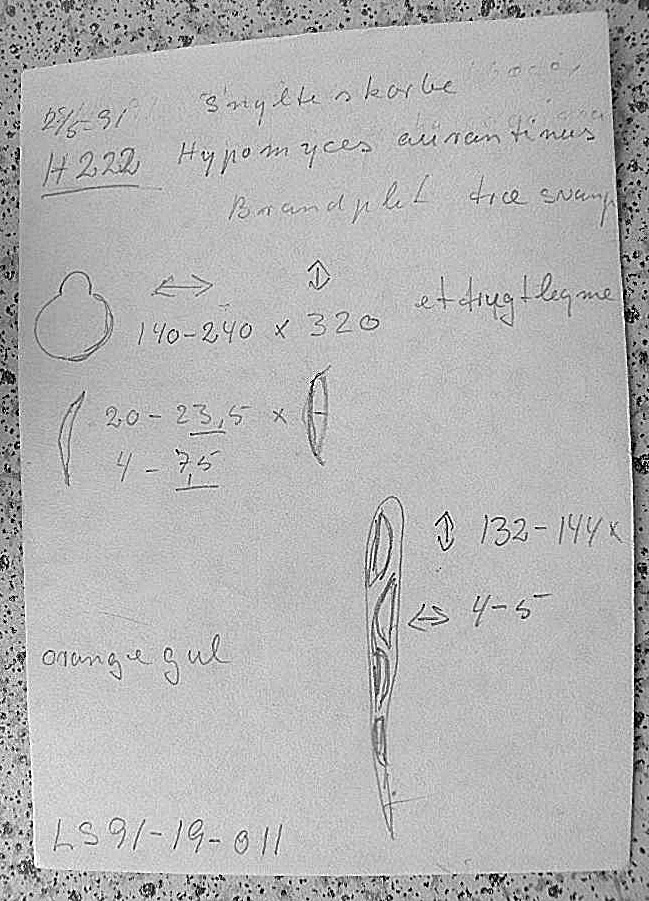 25/5-91 Snylteskorbe
H222 Hypomyces aurantinus
Brandplet træsvamp
140-240 x 320 et frugtlegme
20-23,5 x
4-7,5
132-144 x
4-5
orange gul
LS91-19-011